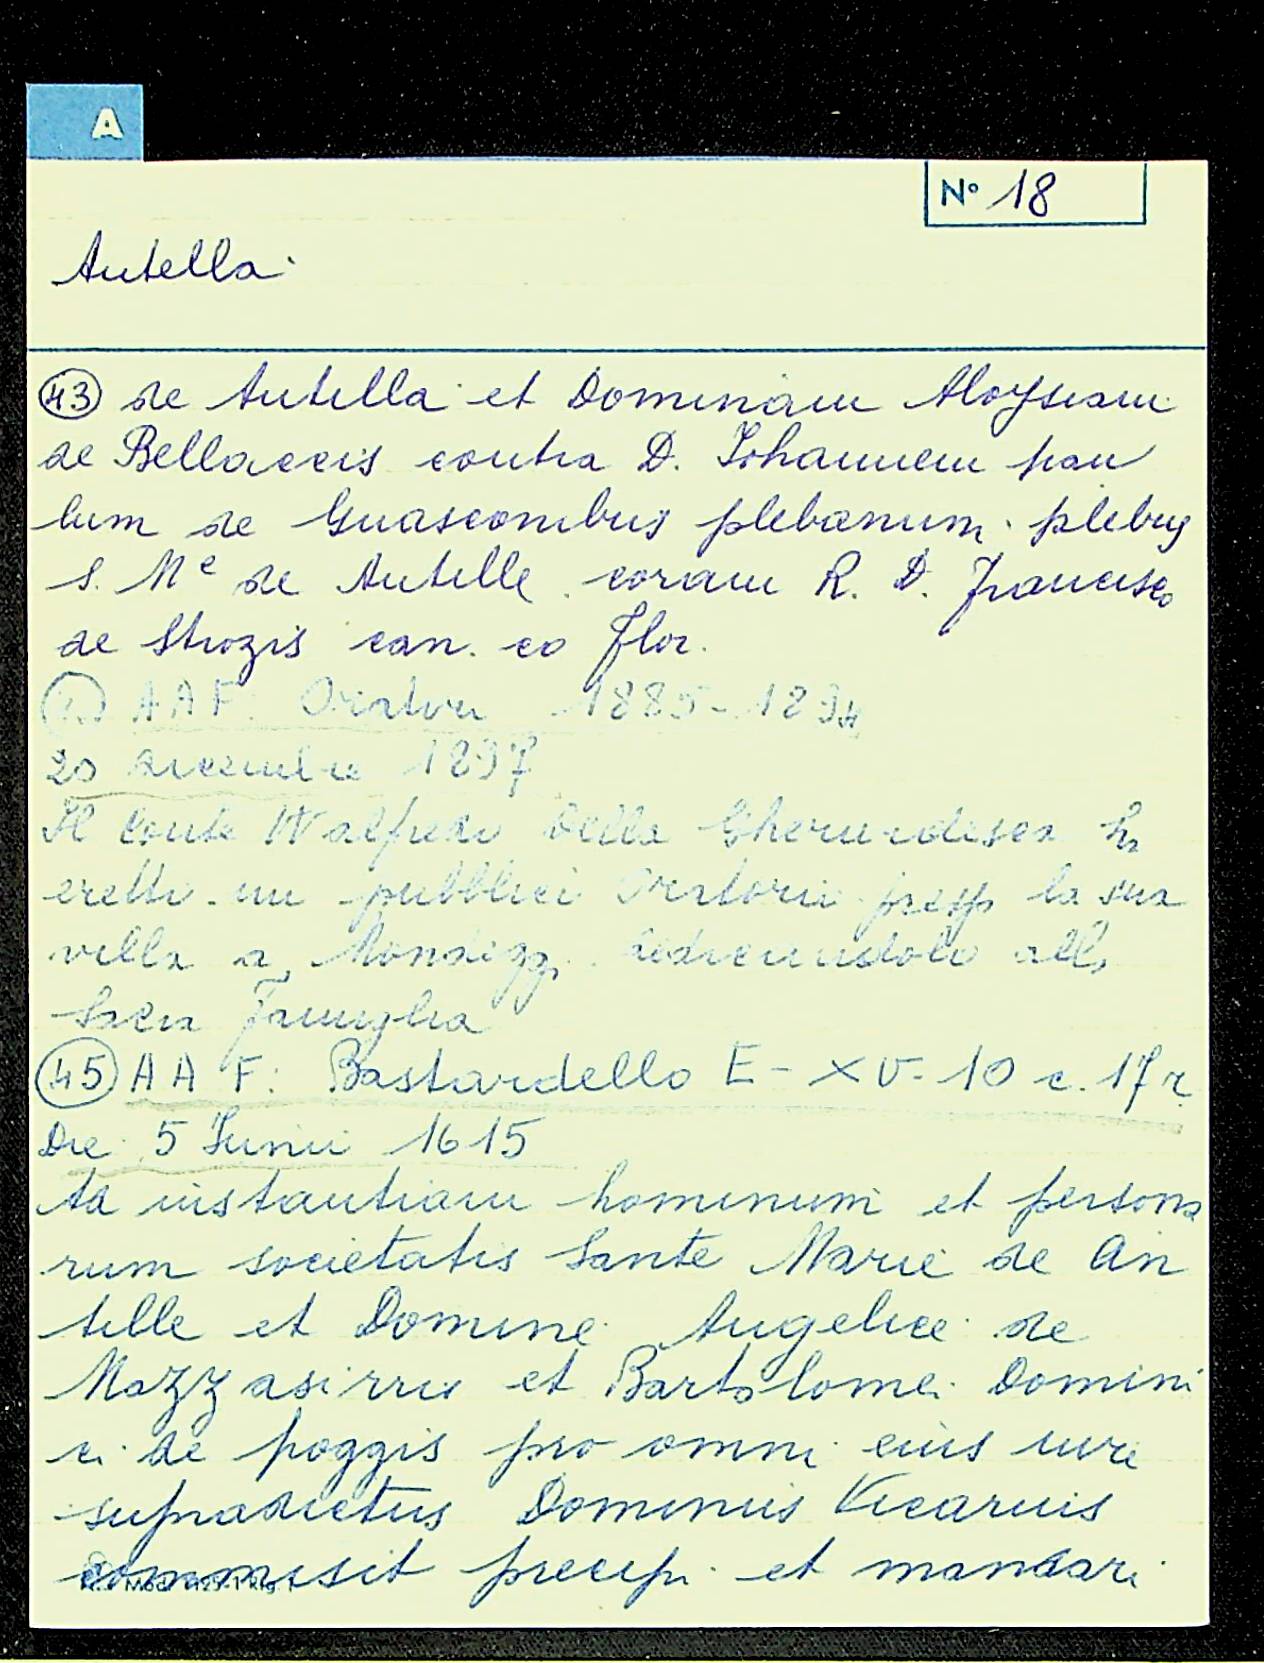 A
N° 18
Antella
43 de Antella et Dominam Aloysiam
de Bellaccis contra D. Iohannem pau
lum de Guasconibus plebanum plebys
S. Me de Antelle coram R. D. Francisco
de Strozis can. co Flor.
AAF. Oratori 1885-1894
20 dicembre 1897
Il Conte Walfredo Della Gherardesca ha
eretto un pubblico Oratorio presso la sua
villa a Mondeggi dedicandolo alla
Sacra Famiglia
45 A A F: Bastardello E- XV- 10 c. 17 r.
Die 5 Iunii 1615
Ad instantiam hominum et persona
rum societatis Sante Marie de An
telle et Domine Angelice de
Mazzasirris et Bartolomei Domini
ci de poggis pro omni eius iure
supradictus Dominus Vicarius
commisit precipi et mandari